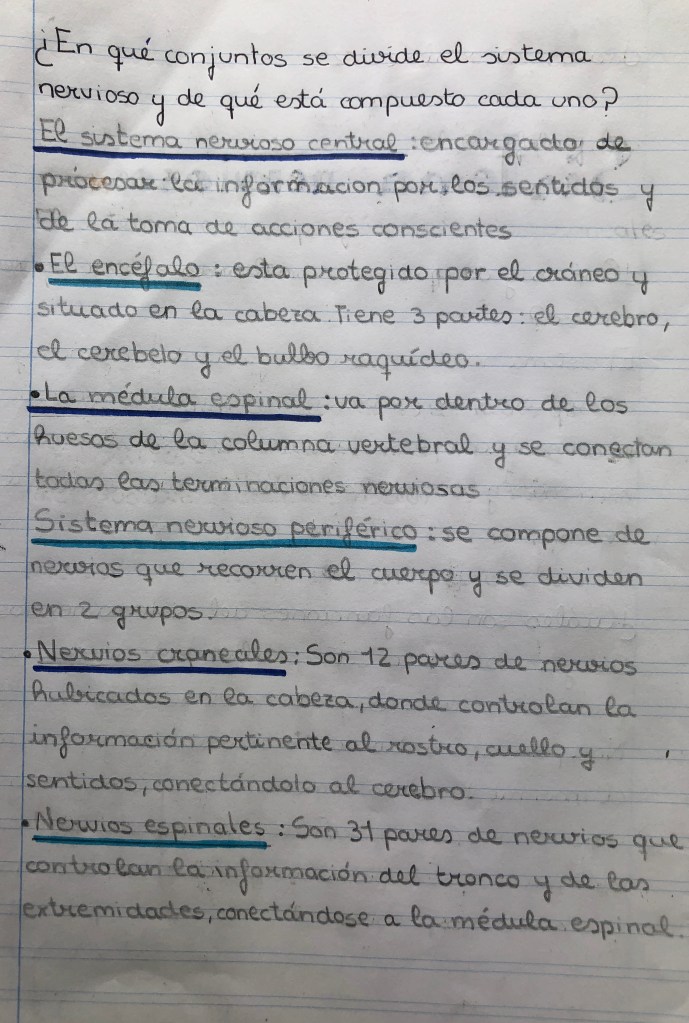 ¿En qué conjuntos se divide el sistema
nervioso y de qué está compuesto cada uno?
El sistema nervioso central: encargado de
procesar la informacion por los sentidos y
de la toma de acciones conscientes
• El encéfalo: esta protegido por el cráneo y
situado en la cabeza. Tiene 3 partes: el cerebro,
el cerebelo y el bulbo raquídeo.
• La médula espinal: va por dentro de los
huesos de la columna vertebral y se conectan
todas las terminaciones nerviosas
Sistema nervioso periférico: se compone de
nervios que recorren el cuerpo y se dividen
en 2 grupos.
• Nervios craneales: Son 12 pares de nervios
hubicados en la cabeza, donde controlan la
información pertinente al rostro, cuello y
sentidos, conectándolo al cerebro.
• Nervios espinales: Son 31 pares de nervios que
controlan la información del tronco y de las
extremidades, conectándose a la médula espinal.